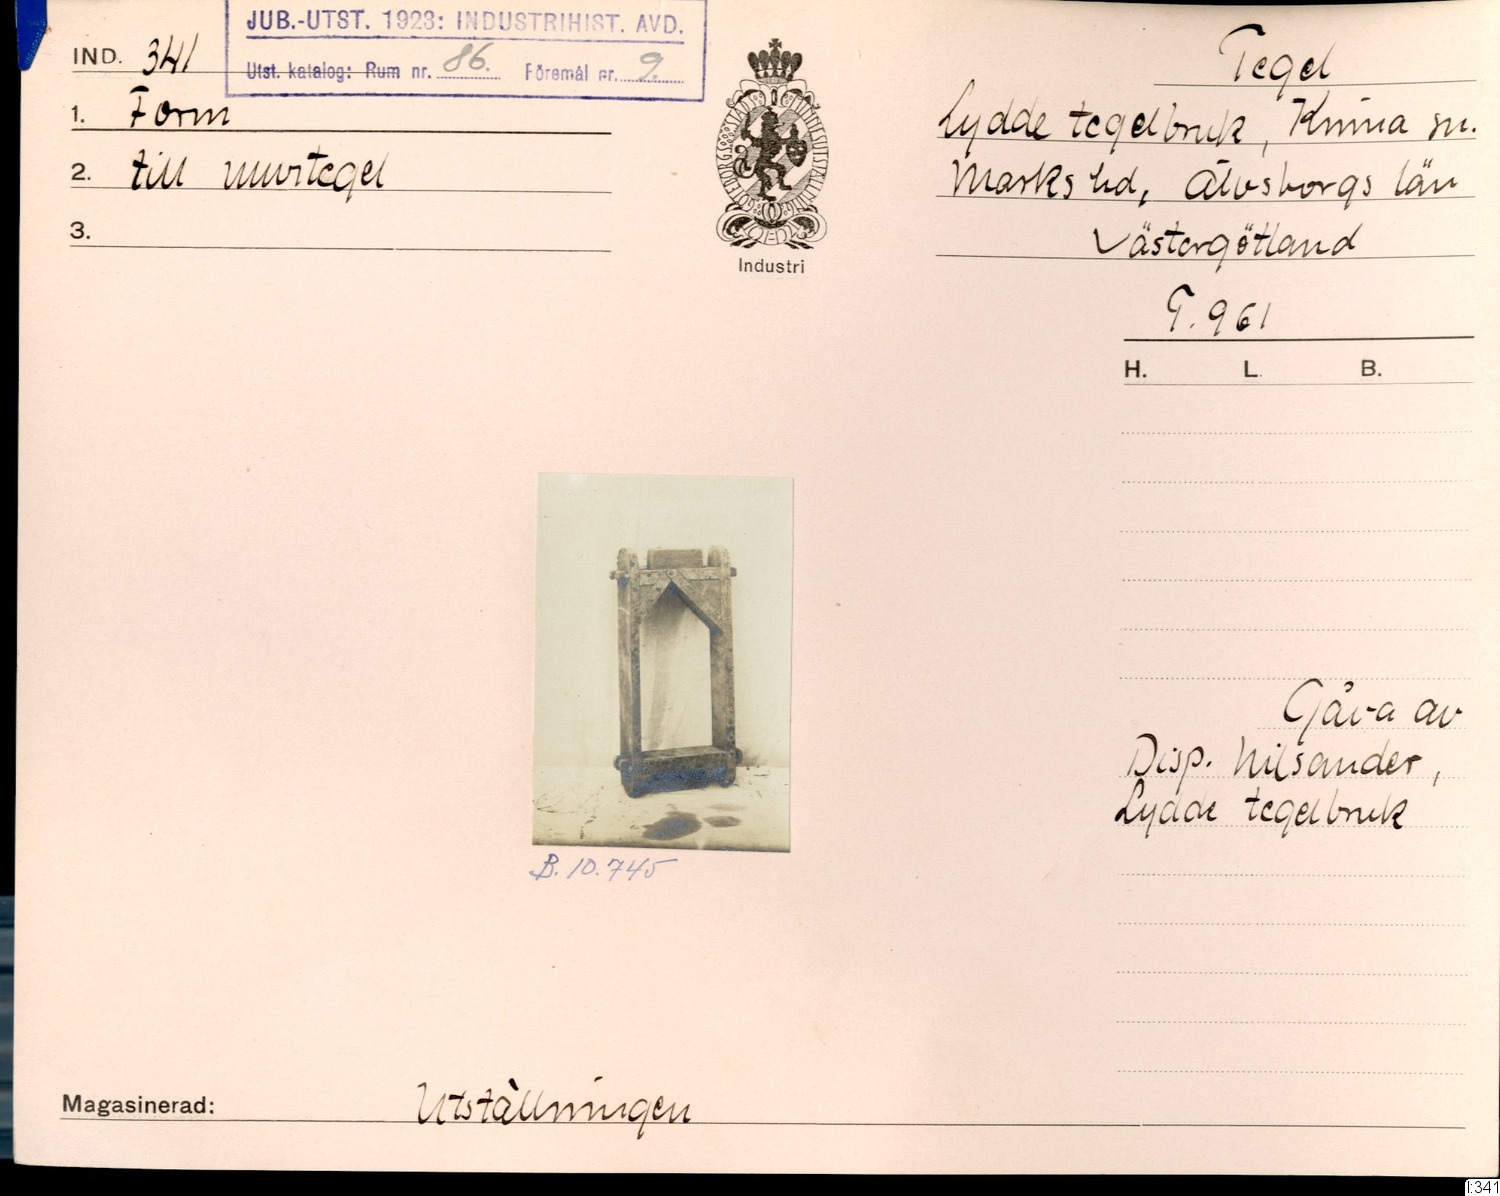 JUB.-UTST. 1923: INDUSTRIHIST. AVD.
Utst. katalog: Rum nr. 86. Föremål nr. 9.
IND. 341
1. Form
2. till murtegel
3.
Industri
Tegel
Lydde tegelbruk, Kinna sn.
Marks hd, Älvsborgs län
Västergötland
T. 961
H. L. B.
Gåva av
Disp. Nilsander,
Lydde tegelbruk
B. 10.745
Magasinerad: Utställningen
I:341